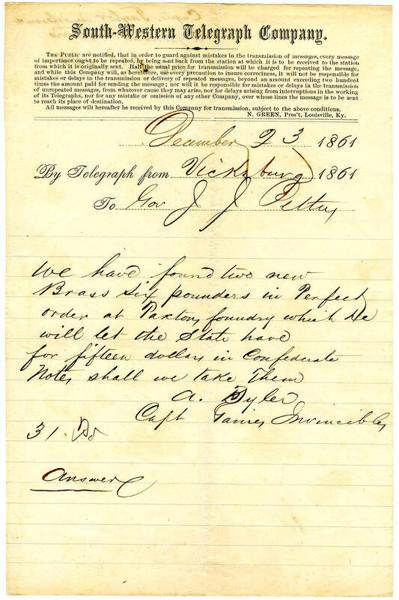 South-Western Telegraph Company.
THE PUBLIC are notified, that in order to guard against mistakes in the transmission of messages, every message
of importance ought to be repeated, by being sent back from the station at which it is to be received to the station
from which it is originally sent. Half the usual price for transmission will be charged for repeating the message,
and while this Company will, as heretofore, use every precaution to insure correctness, it will not be responsible for
mistakes or delays in the transmission or delivery of repeated messages, beyond an amount exceeding two hundred
times the amount paid for sending the message; nor will it be responsible for mistakes or delays in the transmission
of unrepeated messages, from whatever cause they may arise, nor for delays arising from interruptions in the working
of its Telegraphs, nor for any mistake or omission of any other Company, over whose lines the message is to be sent
to reach its place of destination.
All messages hereafter be received by this Company for transmission, subject to the above conditions.
N. GREEN, Pres't, Louisville, Ky.
December 23 1861
By Telegraph from Vicksburg 1861
To Gov J J Pettus
We have found two new
Brass six pounders in Perfect
order at Paxtons foundry which he
will let the State have
for fifteen dollars in Confederate
Notes shall we take them
A.
Capt Gaines Invincibles
31.
Answer